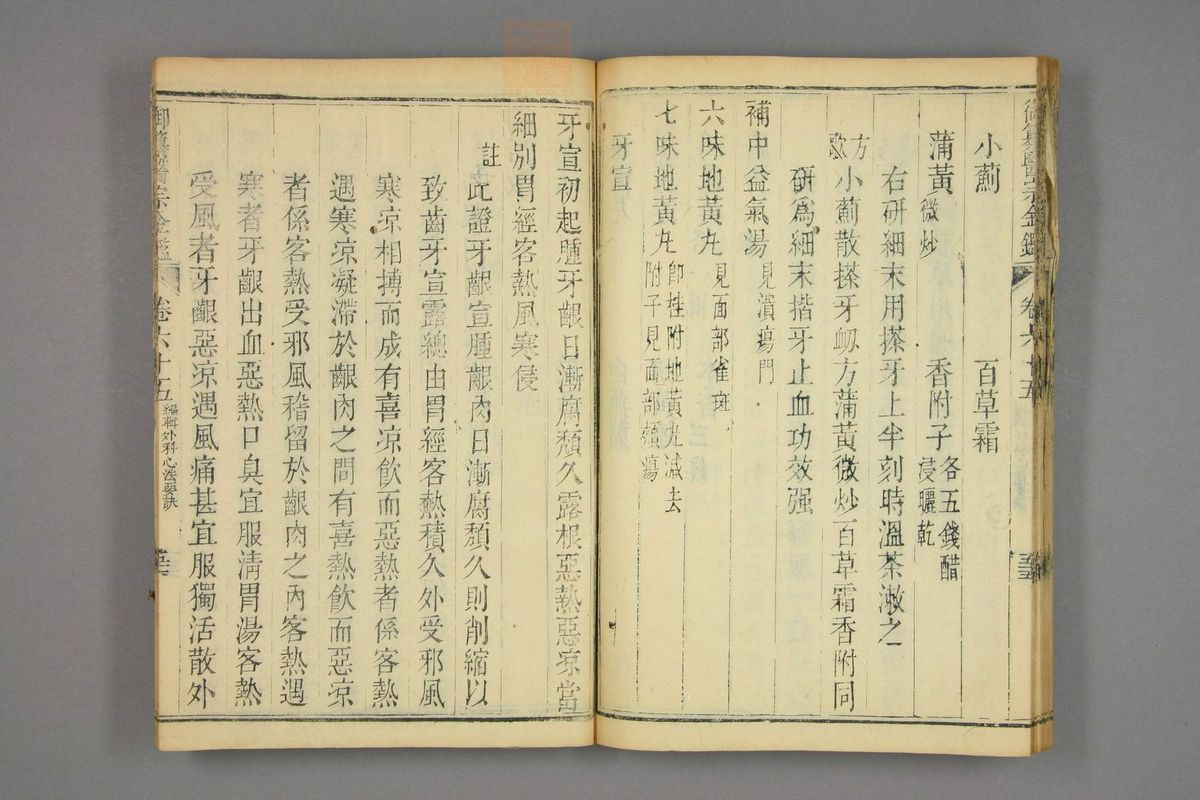 御纂醫宗金鑑 卷六十五
小薊 百草霜
蒲黃微炒 香附子各五錢醋浸曬乾
右研細末用搽牙上半刻時溫茶漱之
方歌 小薊散搽牙衂方蒲黃微炒百草霜香附同
研爲細末揩牙止血功效强
補中益氣湯見潰瘍門
六味地黃丸見面部雀斑
七味地黃丸卽桂附地黃丸減去附子見面部頰瘍
牙宣
牙宣初起腫牙齦日漸腐頹久露根惡熱惡凉當
細別胃經客熱風寒侵
註 此證牙齦宣腫齦肉日漸腐頹久則削縮以
致齒牙宣露總由胃經客熱積久外受邪風
寒凉相搏而成有喜凉飮而惡熱者係客熱
遇寒凉凝滯於齦肉之間有喜熱飮而惡凉
者係客熱受邪風稽留於齦肉之內客熱遇
寒者牙齦出血惡熱口臭宜服淸胃湯客熱
受風者牙齦惡凉遇風痛甚宜服獨活散外
御纂醫宗金鑑 卷六十五 編輯外科心法要訣